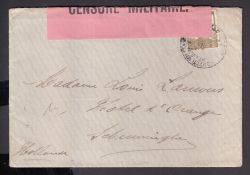 CENSURE MILITAIRE.
Madame Louis
Hôtel d'Orange
Scheveningen
Hollande